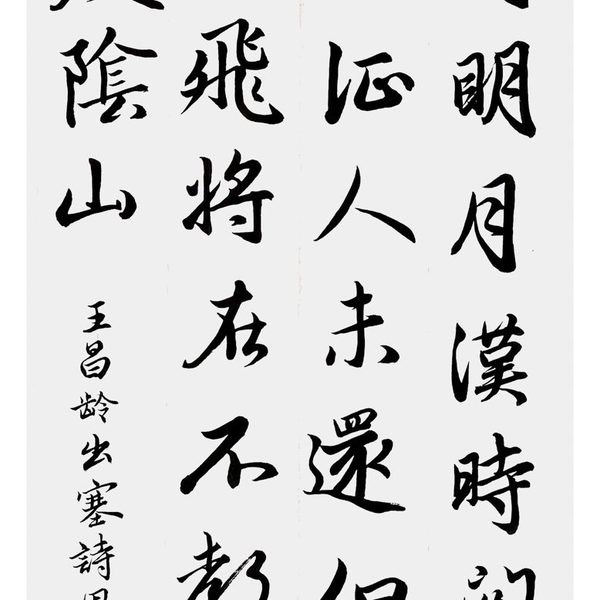 明月漢時
征人未還但
飛將在不教
陰山
王昌龄出塞詩